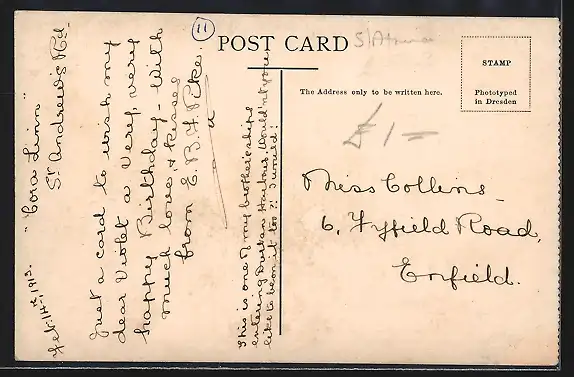 11
POST CARD
STAMP
Phototyped
in Dresden
The Address only to be written here.
£1=
Miss Collins
6, Fyfield Road,
Enfield.
Feb: 14th 1913.
"Cora Linn"
St Andrew's Rd.
Just a card to wish my
dear Violet a very, very
happy Birthday - With
much love, & kisses
from E. B. & F. Pike.
This is one of my brother's ships
entering Durban Harbour. Wouldn't you
like to be on it too?! I would!